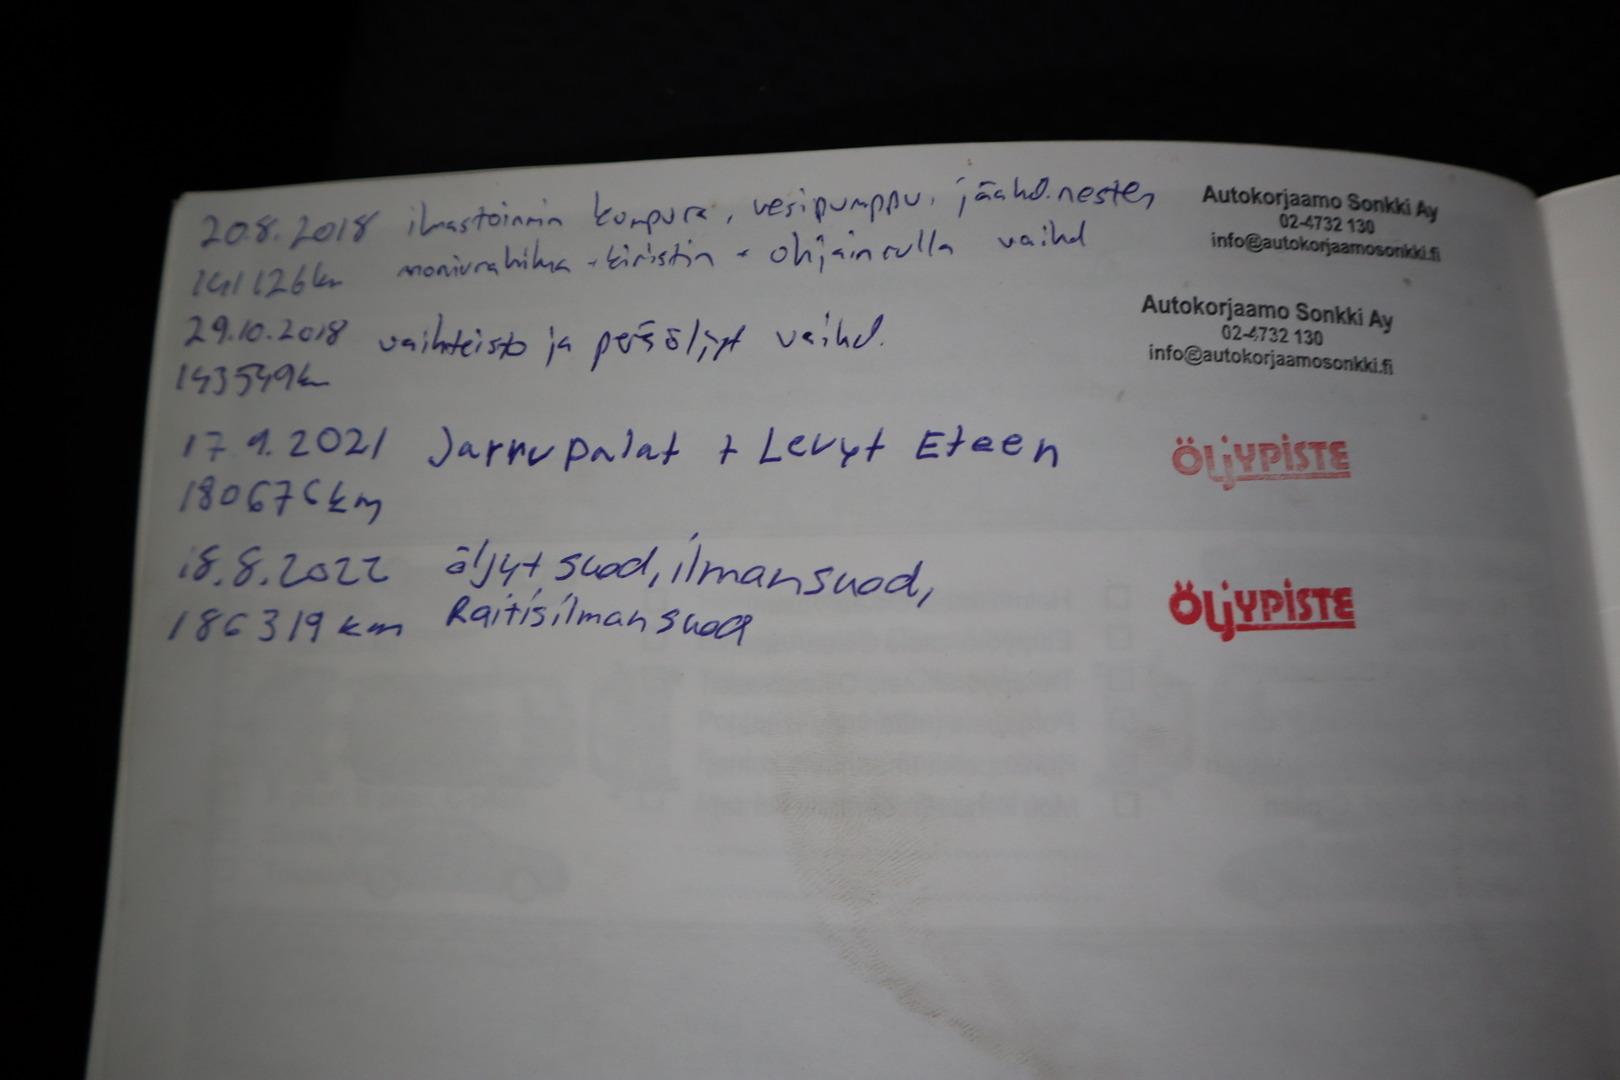 20.8.2018 ilmastoinnin kompura, vesipumppu, jäähd.nesten Autokorjaamo Sonkki Ay
02-4732 130
info@autokorjaamosonkki.fi
141126km moniurahihna + kiristin + ohjainrulla vaihd
29.10.2018 vaihteisto ja peräöljyt vaihd. Autokorjaamo Sonkki Ay
02-4732 130
info@autokorjaamosonkki.fi
143549km
17.9.2021 Jarrupalat + Levyt Eteen ÖLJYPISTE
180676km
18.8.2022 öljyt suod, ilmansuod, ÖLJYPISTE
186319 km Raitisilmansuod